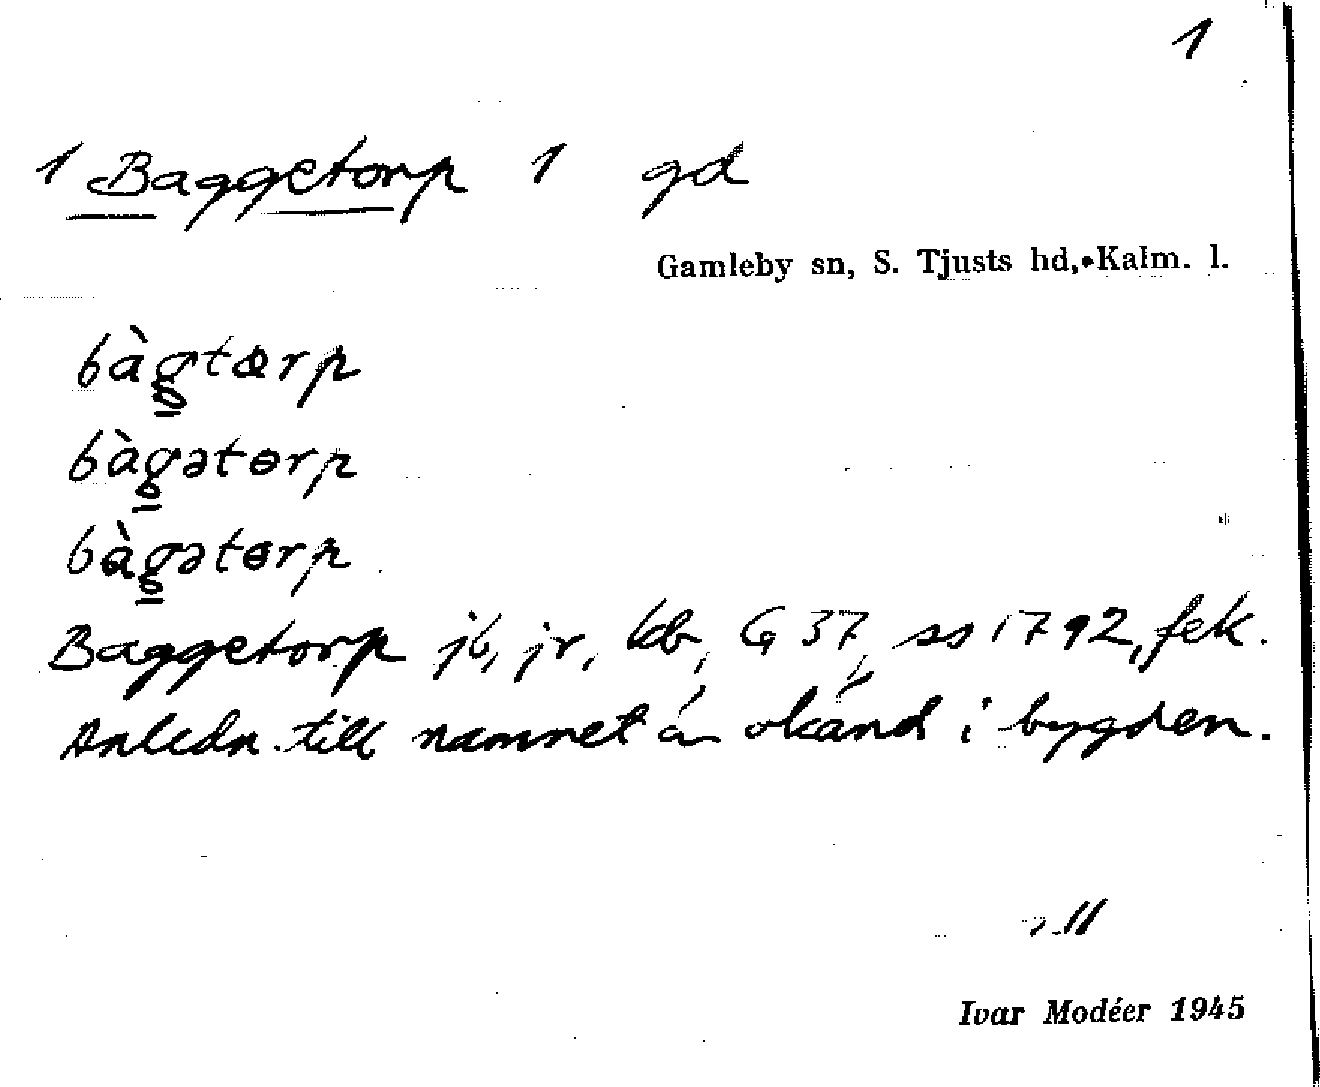 1
1 Baggetorp 1 gd
Gamleby sn, S. Tjusts hd, Kalm. l.
bàgtærp
bàgətɵrp
bàgətɵrp
Baggetorp jb, jr, kb, G 37, ss 1792, fek.
Anledn. till namnet är okänd i bygden.
Ivar Modéer 1945